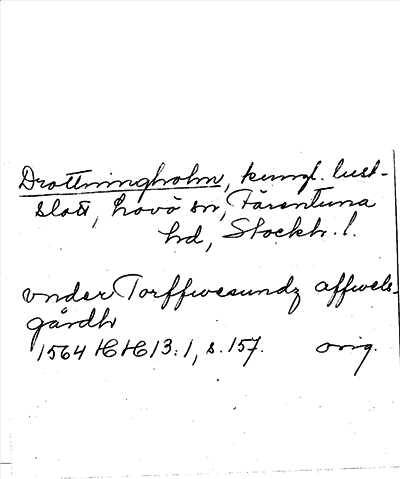 Drottningholm, kungl. lust-
slott, Lovö sn, Färentuna
hd, Stockh. l.
vnder Torffwesundz affwels-
gårdh
1564 HH 13:1, s. 157. orig.